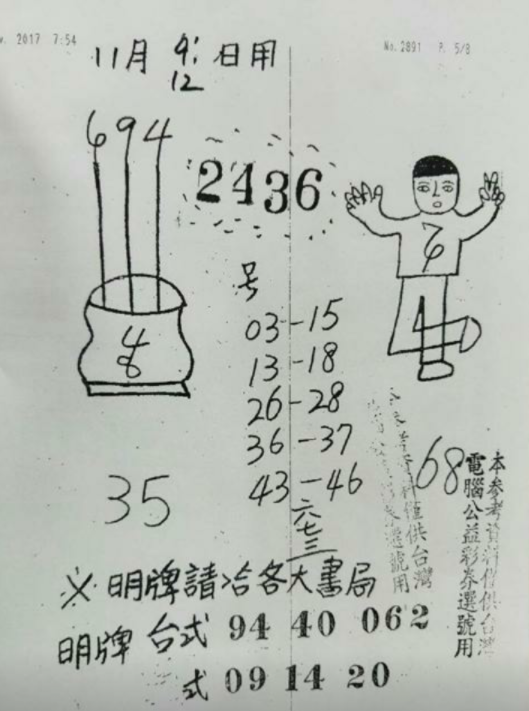 2017 7:54
No.2891 P. 5/8
11月 9; 日用
12
694
2436
6
4
8
号
03-15
13-18
26-28
36-37
43-46
六七三
35
68
本參考資料僅供台灣
電腦公益彩券選號用
僅供台灣
選號用
※明牌請洽各大書局
明牌 台式 94 40 062
式 09 14 20